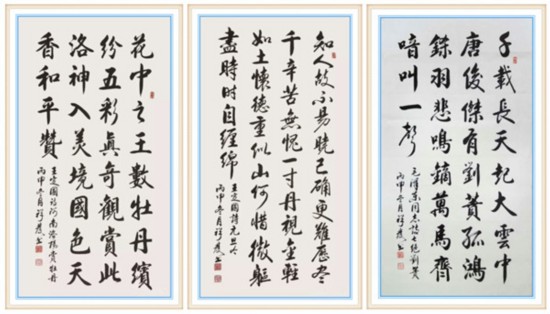 花中之王數牡丹繽
紛五彩真奇觀賞此
洛神入美境國色天
香和平贊
王定國詩河南洛陽賞牡丹
丙申冬月
知人故不易曉己確更難歷尽
千辛苦無愧一寸丹視金輕
如土懷德重似山何惜微軀
盡時时自纏綿
王定國詩元旦吟
丙申冬月
千載長天起大雲中
唐俊傑有劉蕡孤鴻
鎩羽悲鳴鏑萬馬齊
喑叫一聲
毛澤東同志詩七絕劉蕡
丙申冬月